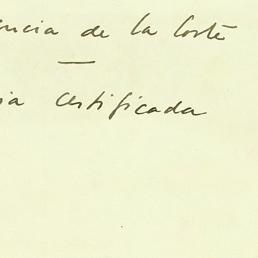 encia de la Corte
—
ia certificada